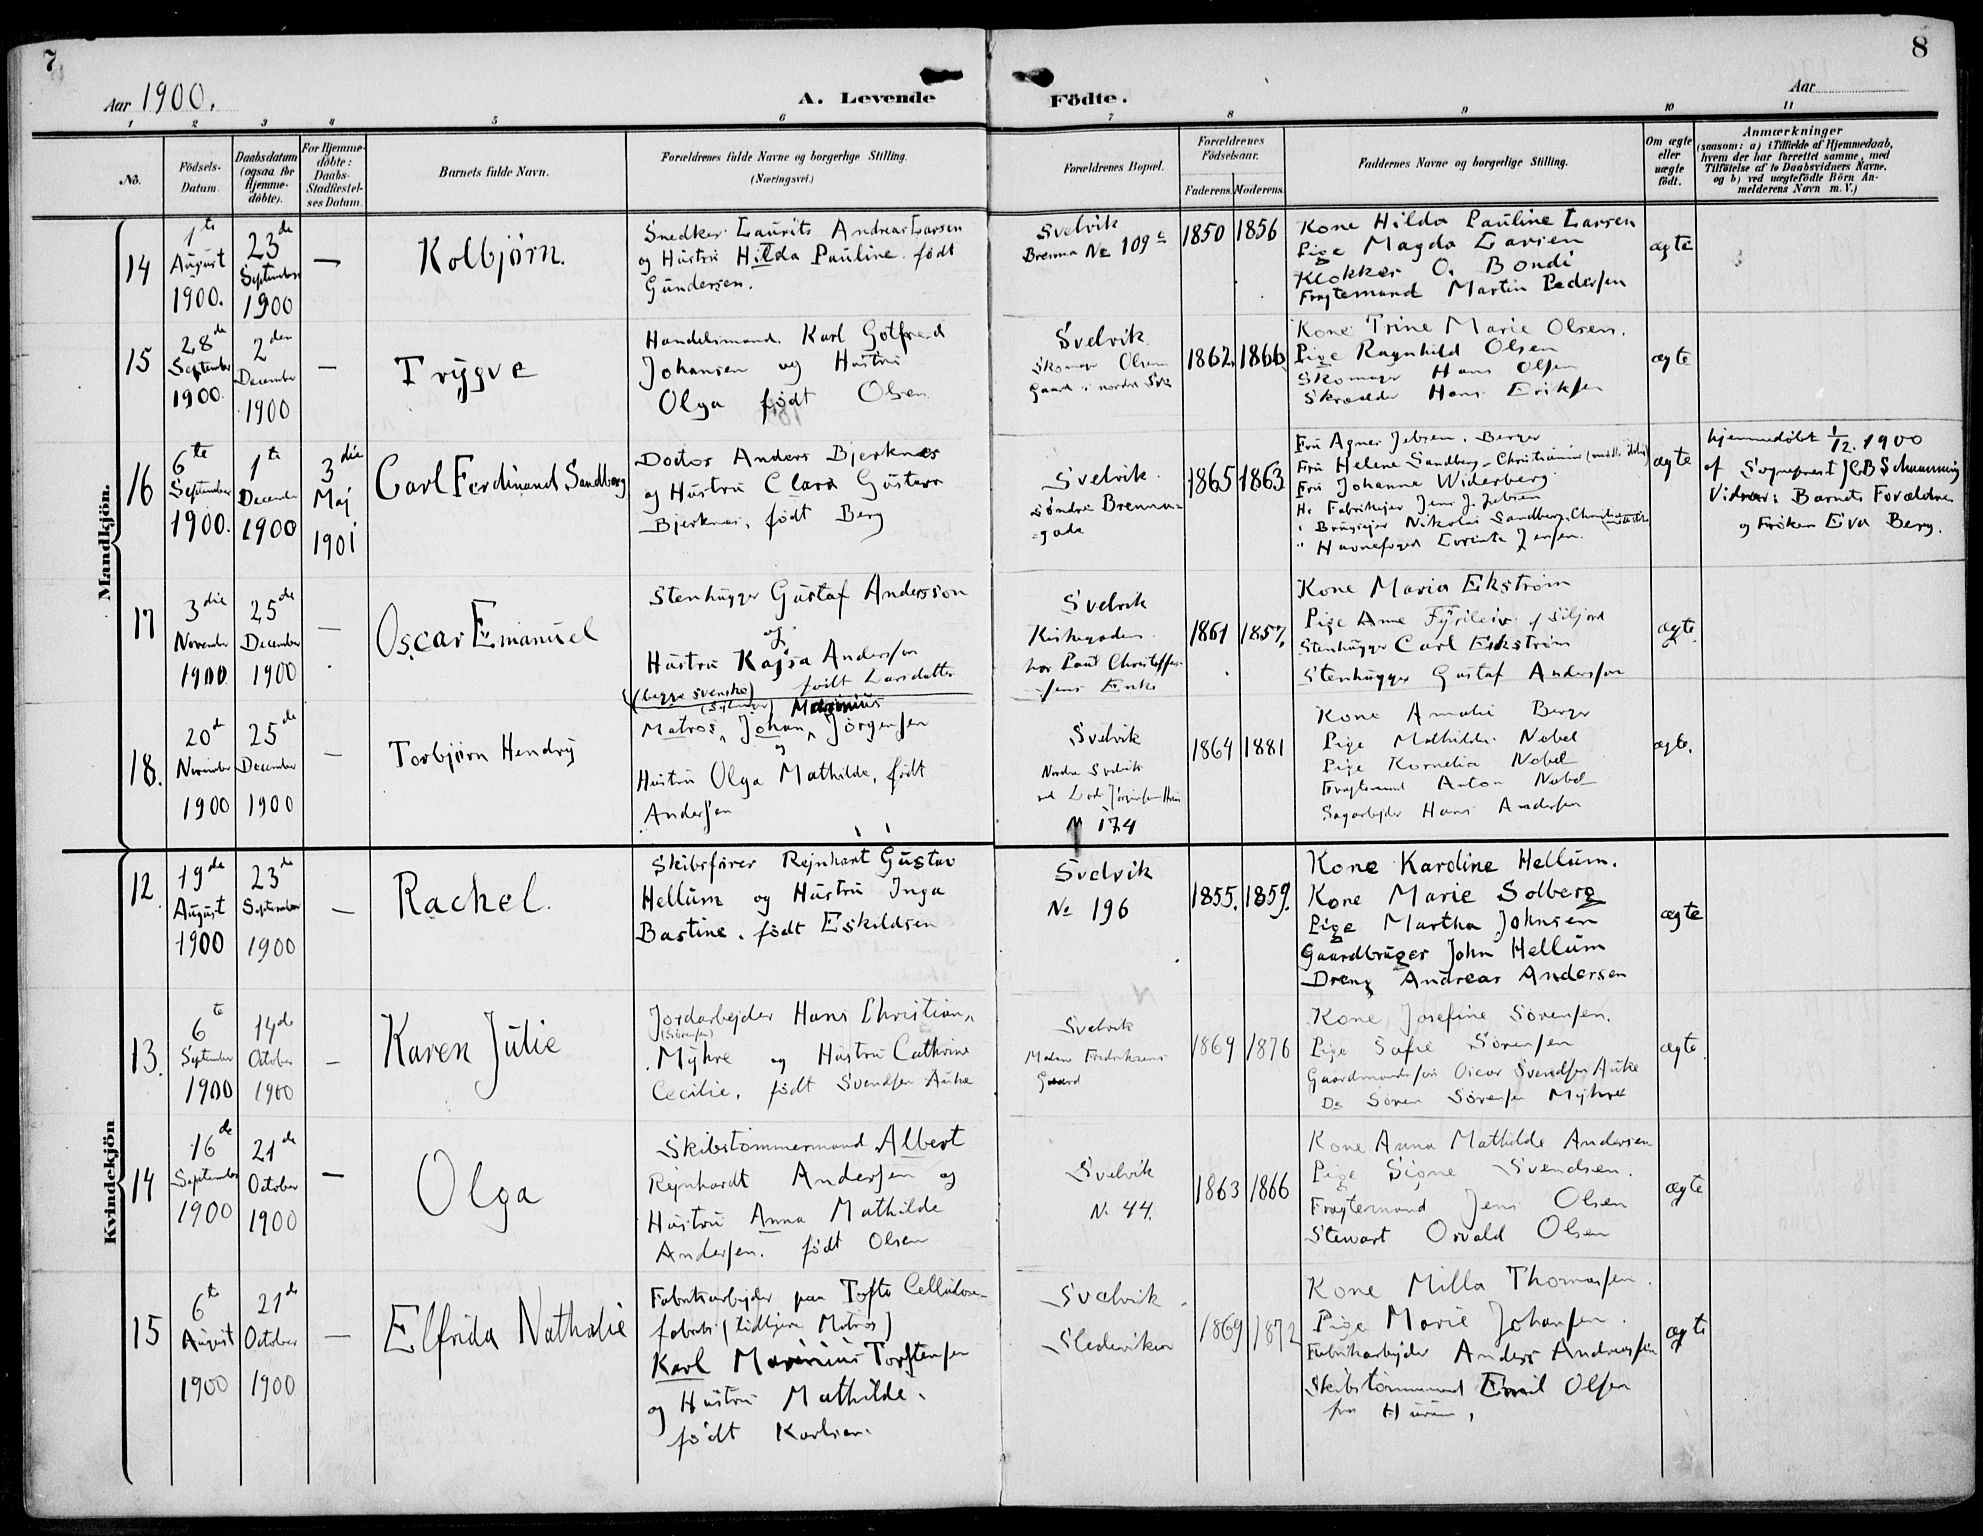 7
8
Aar 1900.
A. Levende
Fødte.
Aar
1 2 3 4 5 6 7 8 9 10 11
No.
Fødsels-
Datum.
Daabsdatum
(ogsaa for
Hjemme-
døbte).
For Hjemme-
døbte:
Daabs-
Stadfæstel-
ses Datum.
Barnets fulde Navn.
Forældrenes fulde Navne og borgerlige Stilling.
(Næringsvei.)
Forældrenes Bopæl.
Forældrenes
Fødselsaar.
Faderens.
Moderens.
Faddernes Navne og borgerlige Stilling.
Om ægte
eller
uægte
født.
Anmærkninger
(saasom: a) i Tilfælde af Hjemmedaab,
hvem der har forrettet samme, med
Tilføielse af to Daabsvidners Navne.
og b) ved uægtefødte Børn An-
melderens Navn m. V.)
Mandkjøn.
14
1te
August
1900.
23de
September
1900
—
Kolbjørn.
Snedker Laurits Andreas Larsen
og Hustru Hilda Pauline født
Gundersen.
Svelvik
Brenna No 109c
1850
1856
Kone Hilda Pauline Larsen
Pige Magda Larsen
Klokker O. Bondi
Fragtemand Martin Pedersen
ægte
15
28de
September
1900.
2den
December
1900
—
Trygve
Handelsmand Karl Gotfred
Johansen og Hustru
Olga født Olsen
Svelvik
Skomager Olsens
Gaard i nordre Svk
1862.
1866
Kone Trine Marie Olsen.
Pige Ragnhild Olsen
Skomager Hans Olsen
Skrædder Hans Eriksen
ægte
16
6te
September
1900.
1te
December
1900
3die
Maj
1901
Carl Ferdinand Sandberg
Doctor Anders Bjerknes
og Hustru Clara Gustava
Bjerknes, født Berg
Svelvik.
søndre Brenna-
gade
1865
1863
Fru Agnes Jebsen. Berger
Fru Helene Sandberg, Christiania
Fru Johanne Widerberg
Hr Fabrikejer Jens J. Jebsen
" Brugsejer Nikolai Sandberg, Christiania
" Havnefoged Jensen.
ægte
hjemmedøbt 1/12. 1900
af Sognepræst
Vidner: Barnets Forældre
og Frøken Eva Berg.
17
3die
November
1900
25de
December
1900
—
Oscar Emanuel
Stenhugger Gustaf Andersson
og
Hustru Kajsa Andersson
(begge svenske) født Larsdatter
Svelvik
Kirkegaden
hos Paul Christoffer-
sens Enke
1861
1857.
Kone Maria Ekström
Pige Anne Fyrileiv af Siljord
Stenhugger Carl Ekström
Stenhugger Gustaf Andersson
ægte.
18.
20de
November
1900
25de
December
1900
—
Torbjørn Hendry
Marinius
Matros, Johan Jørgensen
og
Hustru Olga Mathilde, født
Andersen
Svelvik
Nordre Svelvik
N 174
1864
1881
Kone Amalie Berger
Pige Mathilde Nebel
Pige Kornelia Nebel
Fragtemand Anton Nebel
Sagarbejder Hans Andersen
ægte.
Kvindekjøn
12.
19de
August
1900
23de
September
1900
—
Rachel.
Skibsfører Rejnhart Gustav
Hellum og Hustru Inga
Bastine. født Eskildsen
Svelvik
No 196
1855.
1859.
Kone Karoline Hellum.
Kone Marie Solberg
Pige Martha Johnsen
Gaardbruger John Hellum
Dreng Andreas Andersen
ægte
13.
6te
September
1900
14de
October
1900
—
Karen Julie
Jordarbejder Hans Christian
(Sørensen)
Myhre og Hustru Cathrine
Cecilie, født Svendsen Auke
Svelvik
Madam Fredriksens
Gaard
1869
1876
Kone Josefine Sørensen.
Pige Sofie Sørensen
Gaardmandssøn Oscar Svendsen Auke
Do Søren Sørensen Myhre
ægte.
14
16de
September
1900
21de
October
1900
—
Olga
Skibstømmermand Albert
Rejnhardt Andersen og
Hustru Anna Mathilde
Andersen. født Olsen
Svelvik
N. 44.
1863
1866
Kone Anna Mathilde Andersen
Pige Signe Svendsen.
Fragtemand Jens Olsen
Stewart Osvald Olsen
ægte
15
6te
August
1900
21de
October
1900
—
Elfrida Nathalie
Fabriksarbejder paa Tofte Cellulose-
fabrik (tidligere Matros)
Karl Marinius Torstensen
og Hustru Mathilde.
født Karlsen.
Svelvik.
Sledeviken
1869
1872
Kone Milla Thomassen.
Pige Marie Johansen.
Fabrikarbejder Anders Andreassen
Skibstømmermand Emil Olsen
fra Hurum,
ægte